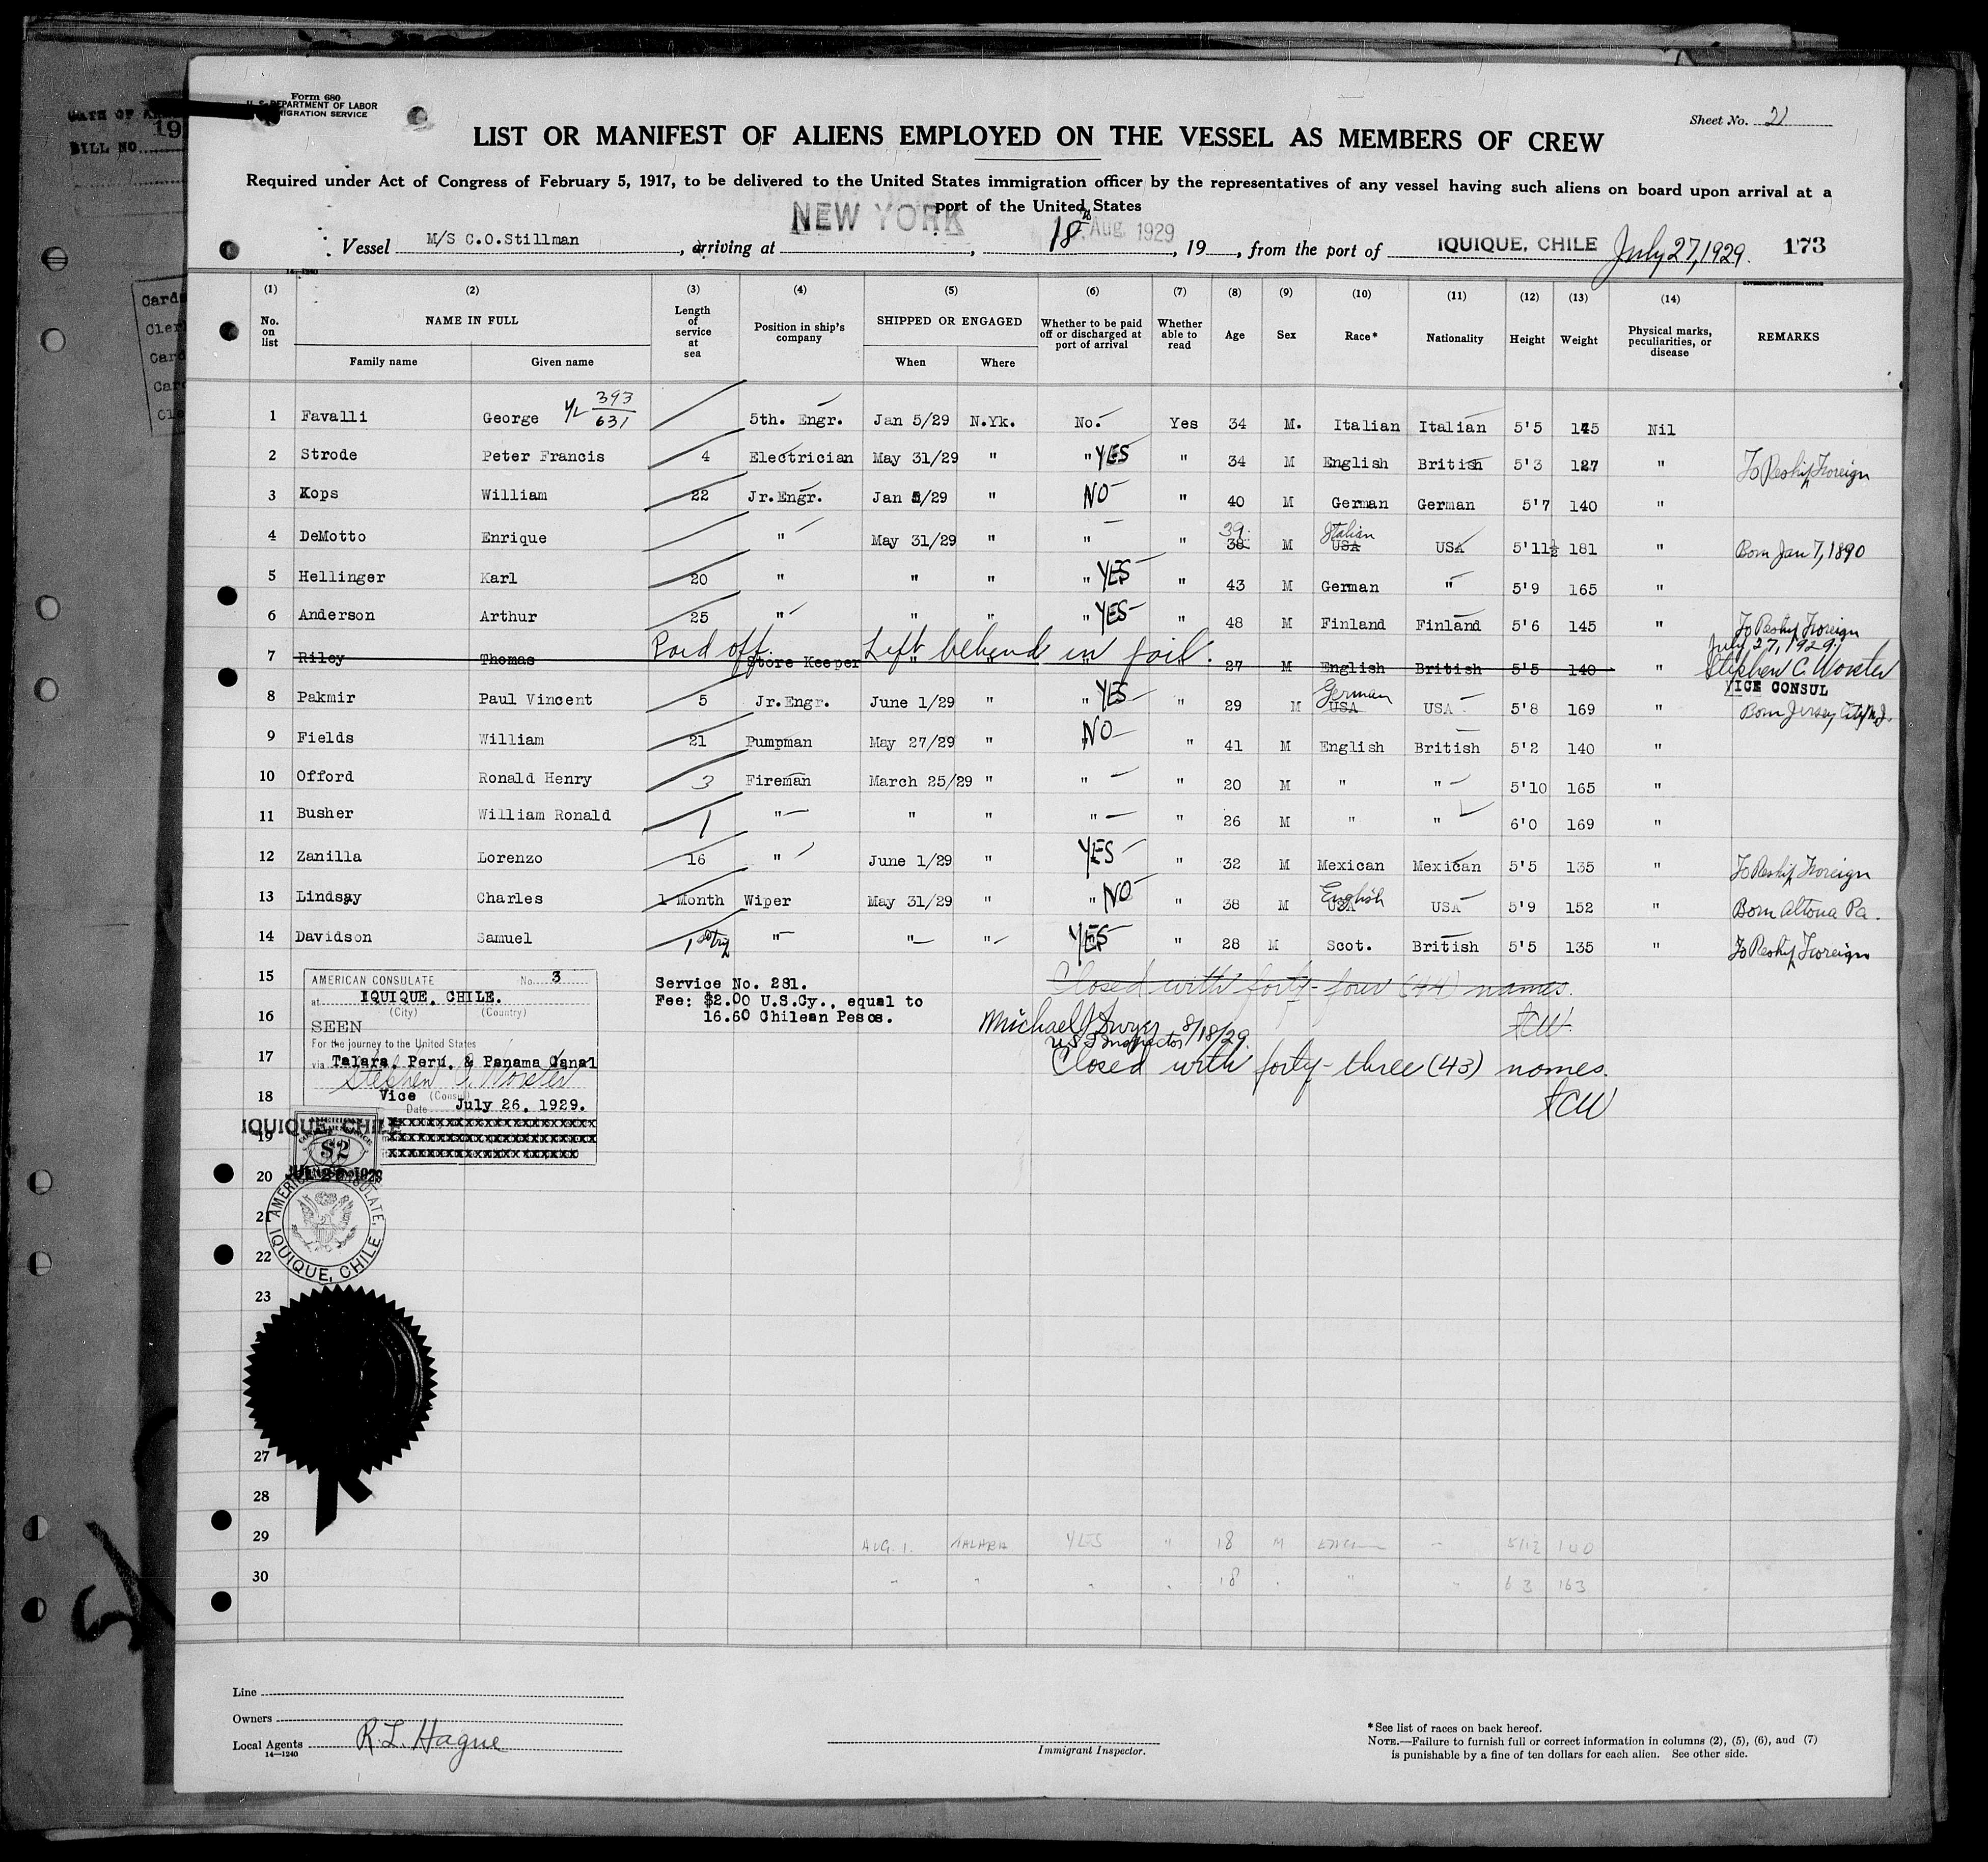 Form 680
U. S. DEPARTMENT OF LABOR
IMMIGRATION SERVICE
Sheet No. 2
LIST OR MANIFEST OF ALIENS EMPLOYED ON THE VESSEL AS MEMBERS OF CREW
Required under Act of Congress of February 5, 1917, to be delivered to the United States immigration officer by the representatives of any vessel having such aliens on board upon arrival at a
port of the United States
Vessel M/S C.O.Stillman, arriving at NEW YORK, 18 Aug 1929, 19, from the port of IQUIQUE, CHILE July 27, 1929. 173
(1) (2) (3) (4) (5) (6) (7) (8) (9) (10) (11) (12) (13) (14)
No. on list NAME IN FULL Family name Given name Length of service at sea Position in ship's company SHIPPED OR ENGAGED When Where Whether to be paid off or discharged at port of arrival Whether able to read Age Sex Race* Nationality Height Weight Physical marks, peculiarities, or disease REMARKS
1 Favalli George 393 631 5th. Engr. Jan 5/29 N.Yk. No. Yes 34 M. Italian Italian 5'5 145 Nil
2 Strode Peter Francis 4 Electrician May 31/29 " " YES " 34 M English British 5'3 127 " To Reship Foreign
3 Kops William 22 Jr.Engr. Jan 5/29 " NO " 40 M German German 5'7 140 "
4 DeMotto Enrique " May 31/29 " " " 39 38 M Italian USA USA 5'11½ 181 " Born Jan 7, 1890
5 Hellinger Karl 20 " " " " YES " 43 M German " 5'9 165 "
6 Anderson Arthur 25 " " " " YES " 48 M Finland Finland 5'6 145 " To Reship Foreign
7 Riley Thomas Paid off. Store Keeper Left behind in jail. 27 M English British 5'5 140 " July 27, 1929. Stephen C. Worster
VICE CONSUL
8 Pakmir Paul Vincent 5 Jr.Engr. June 1/29 " " YES " 29 M German USA USA 5'8 169 " Born Jersey City N.J.
9 Fields William 21 Pumpman May 27/29 " NO " 41 M English British 5'2 140 "
10 Offord Ronald Henry 3 Fireman March 25/29 " " " 20 M " " 5'10 165 "
11 Busher William Ronald 1 " " " " " 26 M " " 6'0 169 "
12 Zanilla Lorenzo 16 " June 1/29 " YES " 32 M Mexican Mexican 5'5 135 " To Reship Foreign
13 Lindsay Charles 1 Month Wiper May 31/29 " " NO " 38 M English USA USA 5'9 152 " Born Altona Pa.
14 Davidson Samuel 1 " " " YES " 28 M Scot. British 5'5 135 " To Reship Foreign
15
16
17
18
19
20
21
22
23
27
28
29 AUG. 1. TALARA YES " 18 M
30 " " " " 18 " " " 6 3 163
AMERICAN CONSULATE No. 3
at IQUIQUE, CHILE.
(City) (Country)
SEEN
For the journey to the United States
via Talara, Peru, & Panama Canal
Stephen C. Worster
Vice (Consul)
Date July 26, 1929.
xxxxxxxxxxxxxxxxxxxxxxx
IQUIQUE, CHILE
$2
AMERICAN CONSULATE, IQUIQUE, CHILE
Service No. 281.
Fee: $2.00 U.S.Cy., equal to
16.60 Chilean Pesos.
Closed with forty-four (44) names.
Michael J Dwyer 8/18/29.
U S Inspector
Closed with forty-three (43) names.
Line
Owners
Local Agents R. L. Hague
14—1240
Immigrant Inspector.
*See list of races on back hereof.
NOTE.—Failure to furnish full or correct information in columns (2), (5), (6), and (7)
is punishable by a fine of ten dollars for each alien. See other side.
BILL NO.